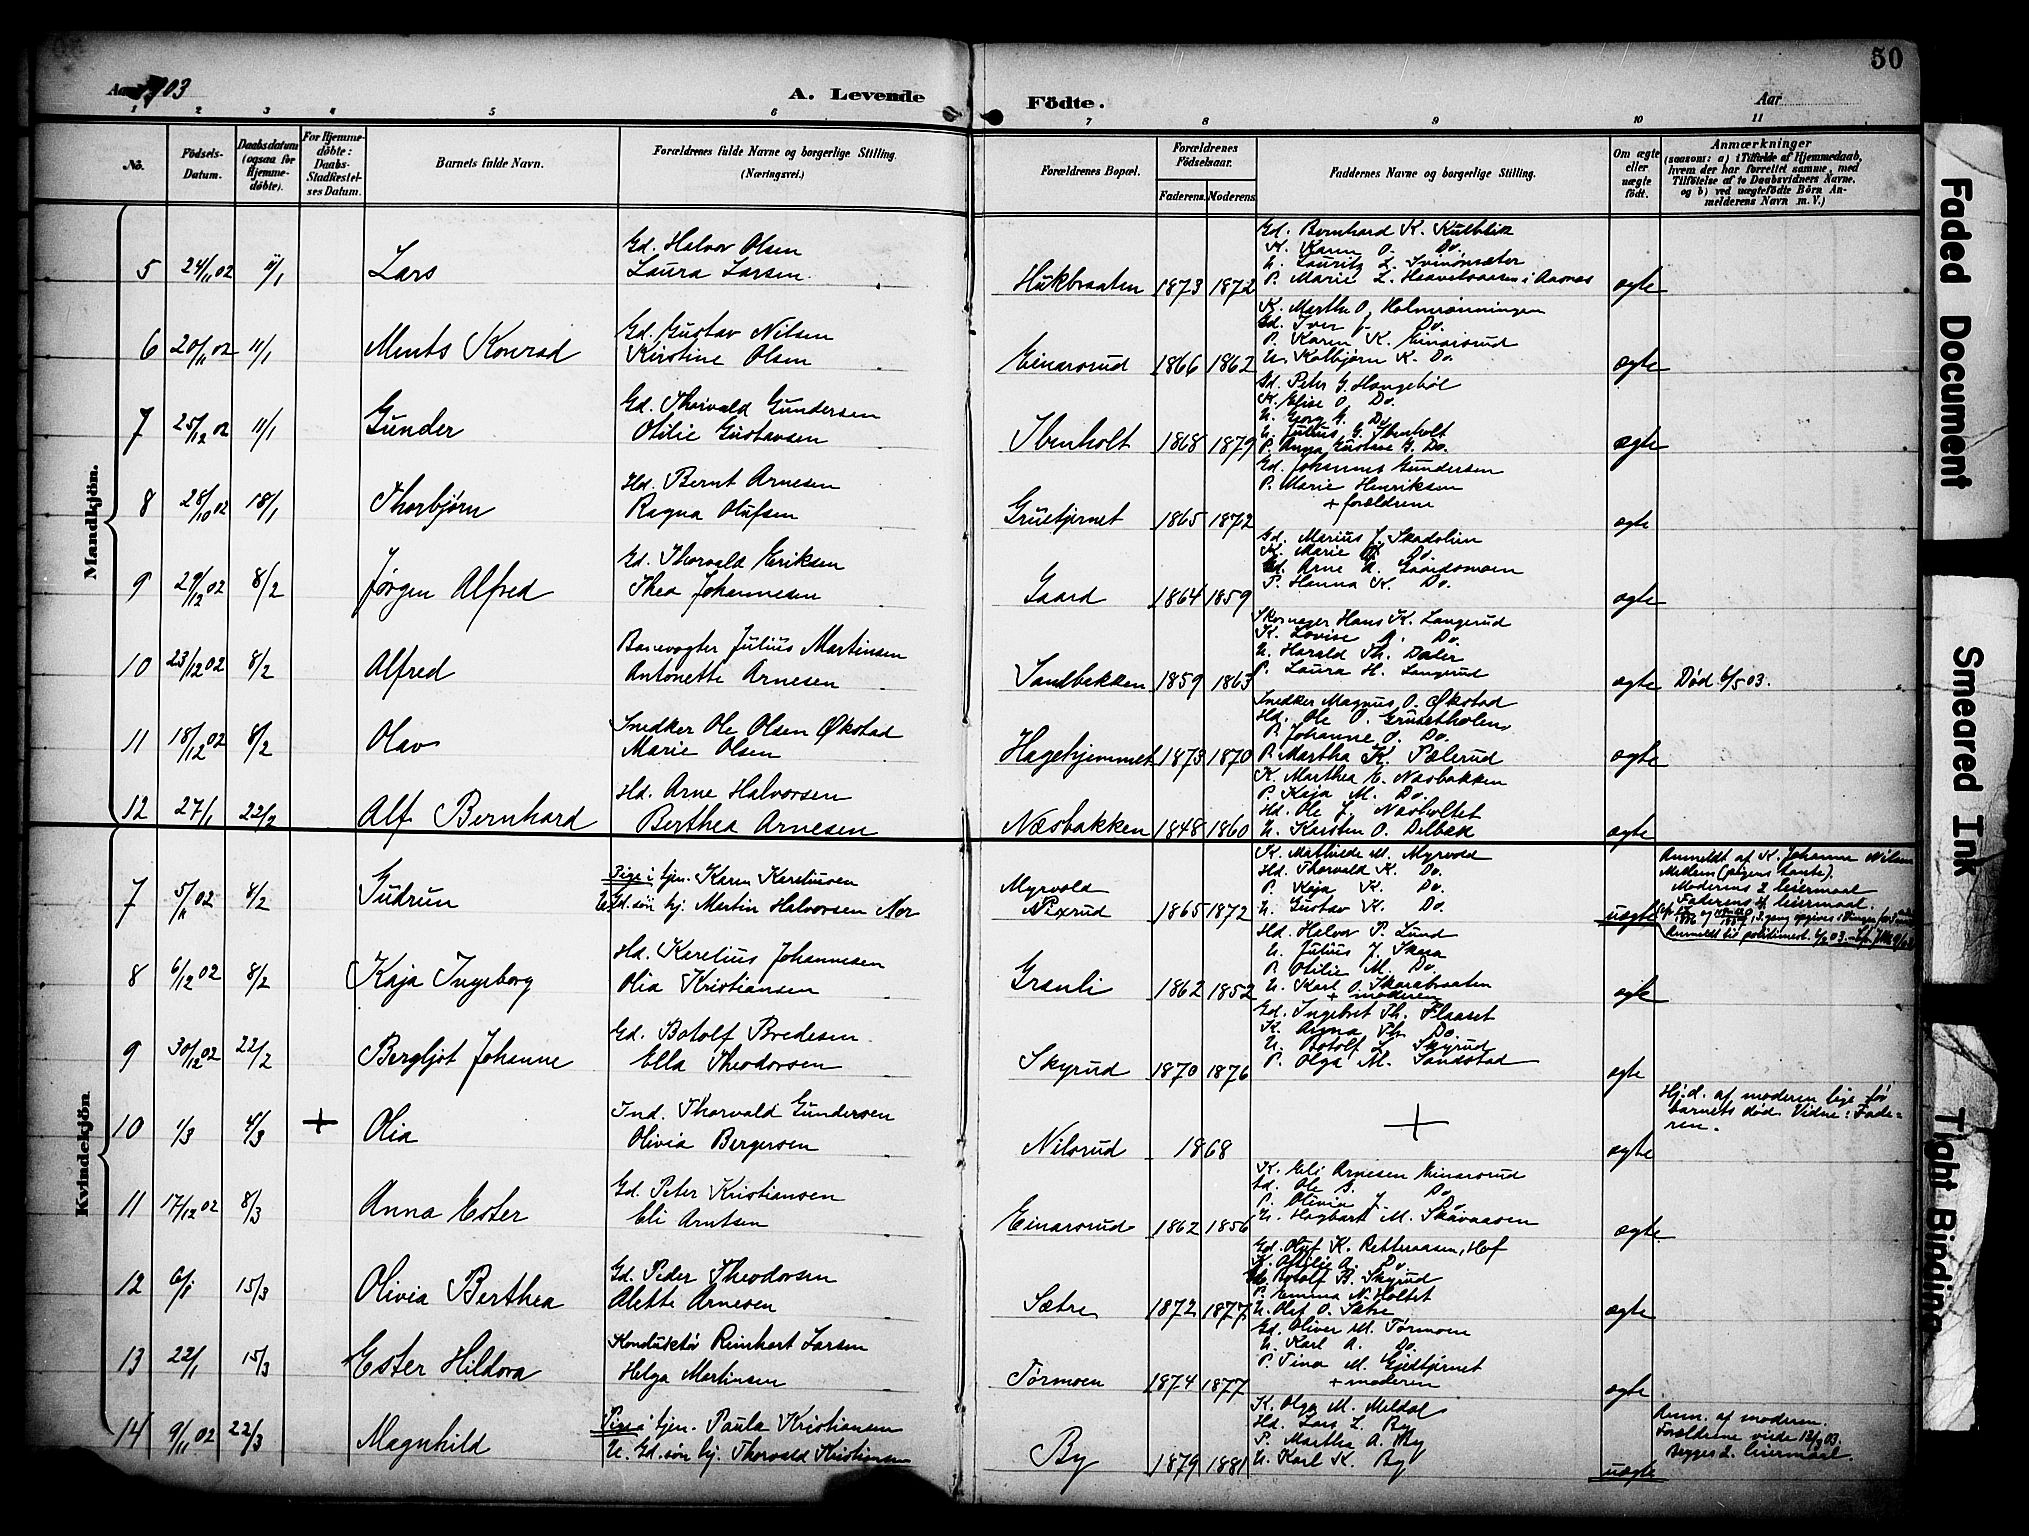 Aar 1903
A. Levende
Födte.
Aar
50
1 2 3 4 5 6 7 8 9 10 11
No.
Födsels-Datum.
Daabsdatum (ogsaa for Hjemme-döbte).
For Hjemme-döbte: Daabs-Stadfæstelses Datum.
Barnets fulde Navn.
Forældrenes fulde Navne og borgerlige Stilling.
(Næringsvei.)
Forældrenes Bopæl.
Forældrenes Födselsaar.
Faderens. Moderens.
Faddernes Navne og borgerlige Stilling.
Om ægte eller uægte födt.
Anmærkninger
(saasom: a) i Tilfælde af Hjemmedaab,
hvem der har forrettet samme, med
Tilföielse af to Daabsvidners Navne,
og b) ved uægtefödte Börn An-
melderens Navn m. V.)
Mandkjön.
5 24/11 02 11/1 Lars
Gd. Halvor Olsen
Laura Larsen
Hukbraaten 1873 1872
Gd. Bernhard K. Kulblik
K. Karen O. Do.
U. Lauritz L.
P. Marie L. i Aasnes
ægte
6 20/11 02 11/1 Ments Konrad
Gd. Gustav Nilsen
Kirstine Olsen
Einarsrud 1866 1862
K. Marthe O. Holmrønningen
Gd. Iver J. Do.
P. Karen K. Einarsrud
U. Kolbjørn K. Do.
ægte
7 25/12 02 11/1 Gunder
Gd. Thorvald Gundersen
Otilie Gustavsen
Ibenholt 1868 1879
Gd. Peter G. Haugebøl
K. Elise O. Do.
U. Georg G. Do.
U. Julius G. Ibenholt
P. Anna Gustava G. Do.
ægte
8 28/10 02 18/1 Thorbjørn
Hd. Bernt Arnesen
Ragna Olufsen
Gruetjernet 1865 1872
Gd. Johannes Gundersen
P. Marie Henriksen
+ forældrene
ægte
9 29/12 02 8/2 Jørgen Alfred
Gd. Thorvald Eriksen
Thea Johannesen
Gaard 1864 1859
Gd. Marius J. Skadolim
K. Marie K. Do.
Gd. Arne A. Gaardsmoen
P. Hanna K. Do.
ægte
10 23/12 02 8/2 Alfred
Banevogter Julius Martinsen
Antonette Arnesen
Sandbakken 1859 1863
Skomager Hans K. Langerud
K. Lovise A. Do.
U. Harald Th. Dæler
P. Laura H. Langerud
ægte
Død 6/5 03.
11 18/12 02 8/2 Olav
Snedker Ole Olsen Økstad
Marie Olsen
Hagehjemmet 1873 1870
Snedker Magnus O. Økstad
Hd. Ole O. Grusetholen
P. Johanne O. Do.
P. Martha K. Pælerud
ægte
12 27/1 22/2 Alf Bernhard
Hd. Arne Halvorsen
Berthea Arnesen
Næsbakken 1848 1860
K. Marthea E. Næsbakken
P. Kaja M. Do.
Hd. Ole J. Næsholtet
U. Karsten O. Delbæk
ægte
Kvindekjön
7 5/11 02 8/2 Gudrun
Pige i tjen. Karen Kareliusen
U. Gd.søn hj. Martin Halvorsen Nor
Myrvold
Nixrud 1865 1872
K. Mathilde M. Myrvold
Hd. Thorvald K. Do.
P. Kaja K. Do.
U. Gustav K. Do.
uægte
Anmeldt af K. Johanne Nilsen
Medem (pigens tante).
Moderens 2 leiermaal
Faderens 4 leiermaal.
Anmeldt til politimest.
8 6/12 02 8/2 Kaja Ingeborg
Hd. Karelius Johannesen
Olia Kristiansen
Granli 1862 1852
Hd. Halvor P. Lund
U. Julius J. Skara
P. Otilie M. Do.
U. Karl O. Skarabraaten
+ moderen
ægte
9 30/12 02 22/2 Bergljot Johanne
Gd. Botolf Bredesen
Ella Theodorsen
Skyrud 1870 1876
Gd. Ingebret Th. Flaaset
K. Anna Th. Do.
U. Botolf L. Skyrud
P. Olga M. Sandstad
ægte
10 1/3 4/3 + Olia
Ind. Thorvald Gundersen
Olivia Bergersen
Nilsrud 1868
+
ægte
Hj.d. af moderen lige før
barnets død. Vidne: Fade-
ren.
11 17/12 02 8/3 Anna Ester
Gd. Peter Kristiansen
Eli Arntsen
Einarsrud 1862 1856
K. Eli Arnesen Einarsrud
Gd. Ole B. Do.
P. Olivia J. Do.
U. Hagbart M. Skavaasen
ægte
12 6/1 15/3 Olivia Berthea
Gd. Peder Theodorsen
Alette Arnesen
Sætre 1872 1877
Gd. Oluf K. Retteraasen, Hof
K. Otilie A. Do.
Gd. Botolf B. Skyrud
P. Emma N. Holtet
U. Olaf O. Sætre
ægte
13 22/1 15/3 Ester Hildora
Konduktør Reinhart Larsen
Helga Martinsen
Tørmoen 1874 1877
Gd. Oliver M. Tørmoen
U. Karl A. Do.
P. Tina M. Gjedtjernet
+ moderen
ægte
14 9/11 02 22/3 Magnhild
Pige i tjen. Paula Kristiansen
U. Gd.søn hj. Thorvald Kristiansen
By 1879 1881
K. Olga M. Meldal
Hd. Lars L. By
P. Martha A. By
U. Karl K. By
uægte
Anm. af moderen.
Forældrene viede 12/3 03.
Begges 2. leiermaal.
Faded Document
Smeared Ink
Tight Binding